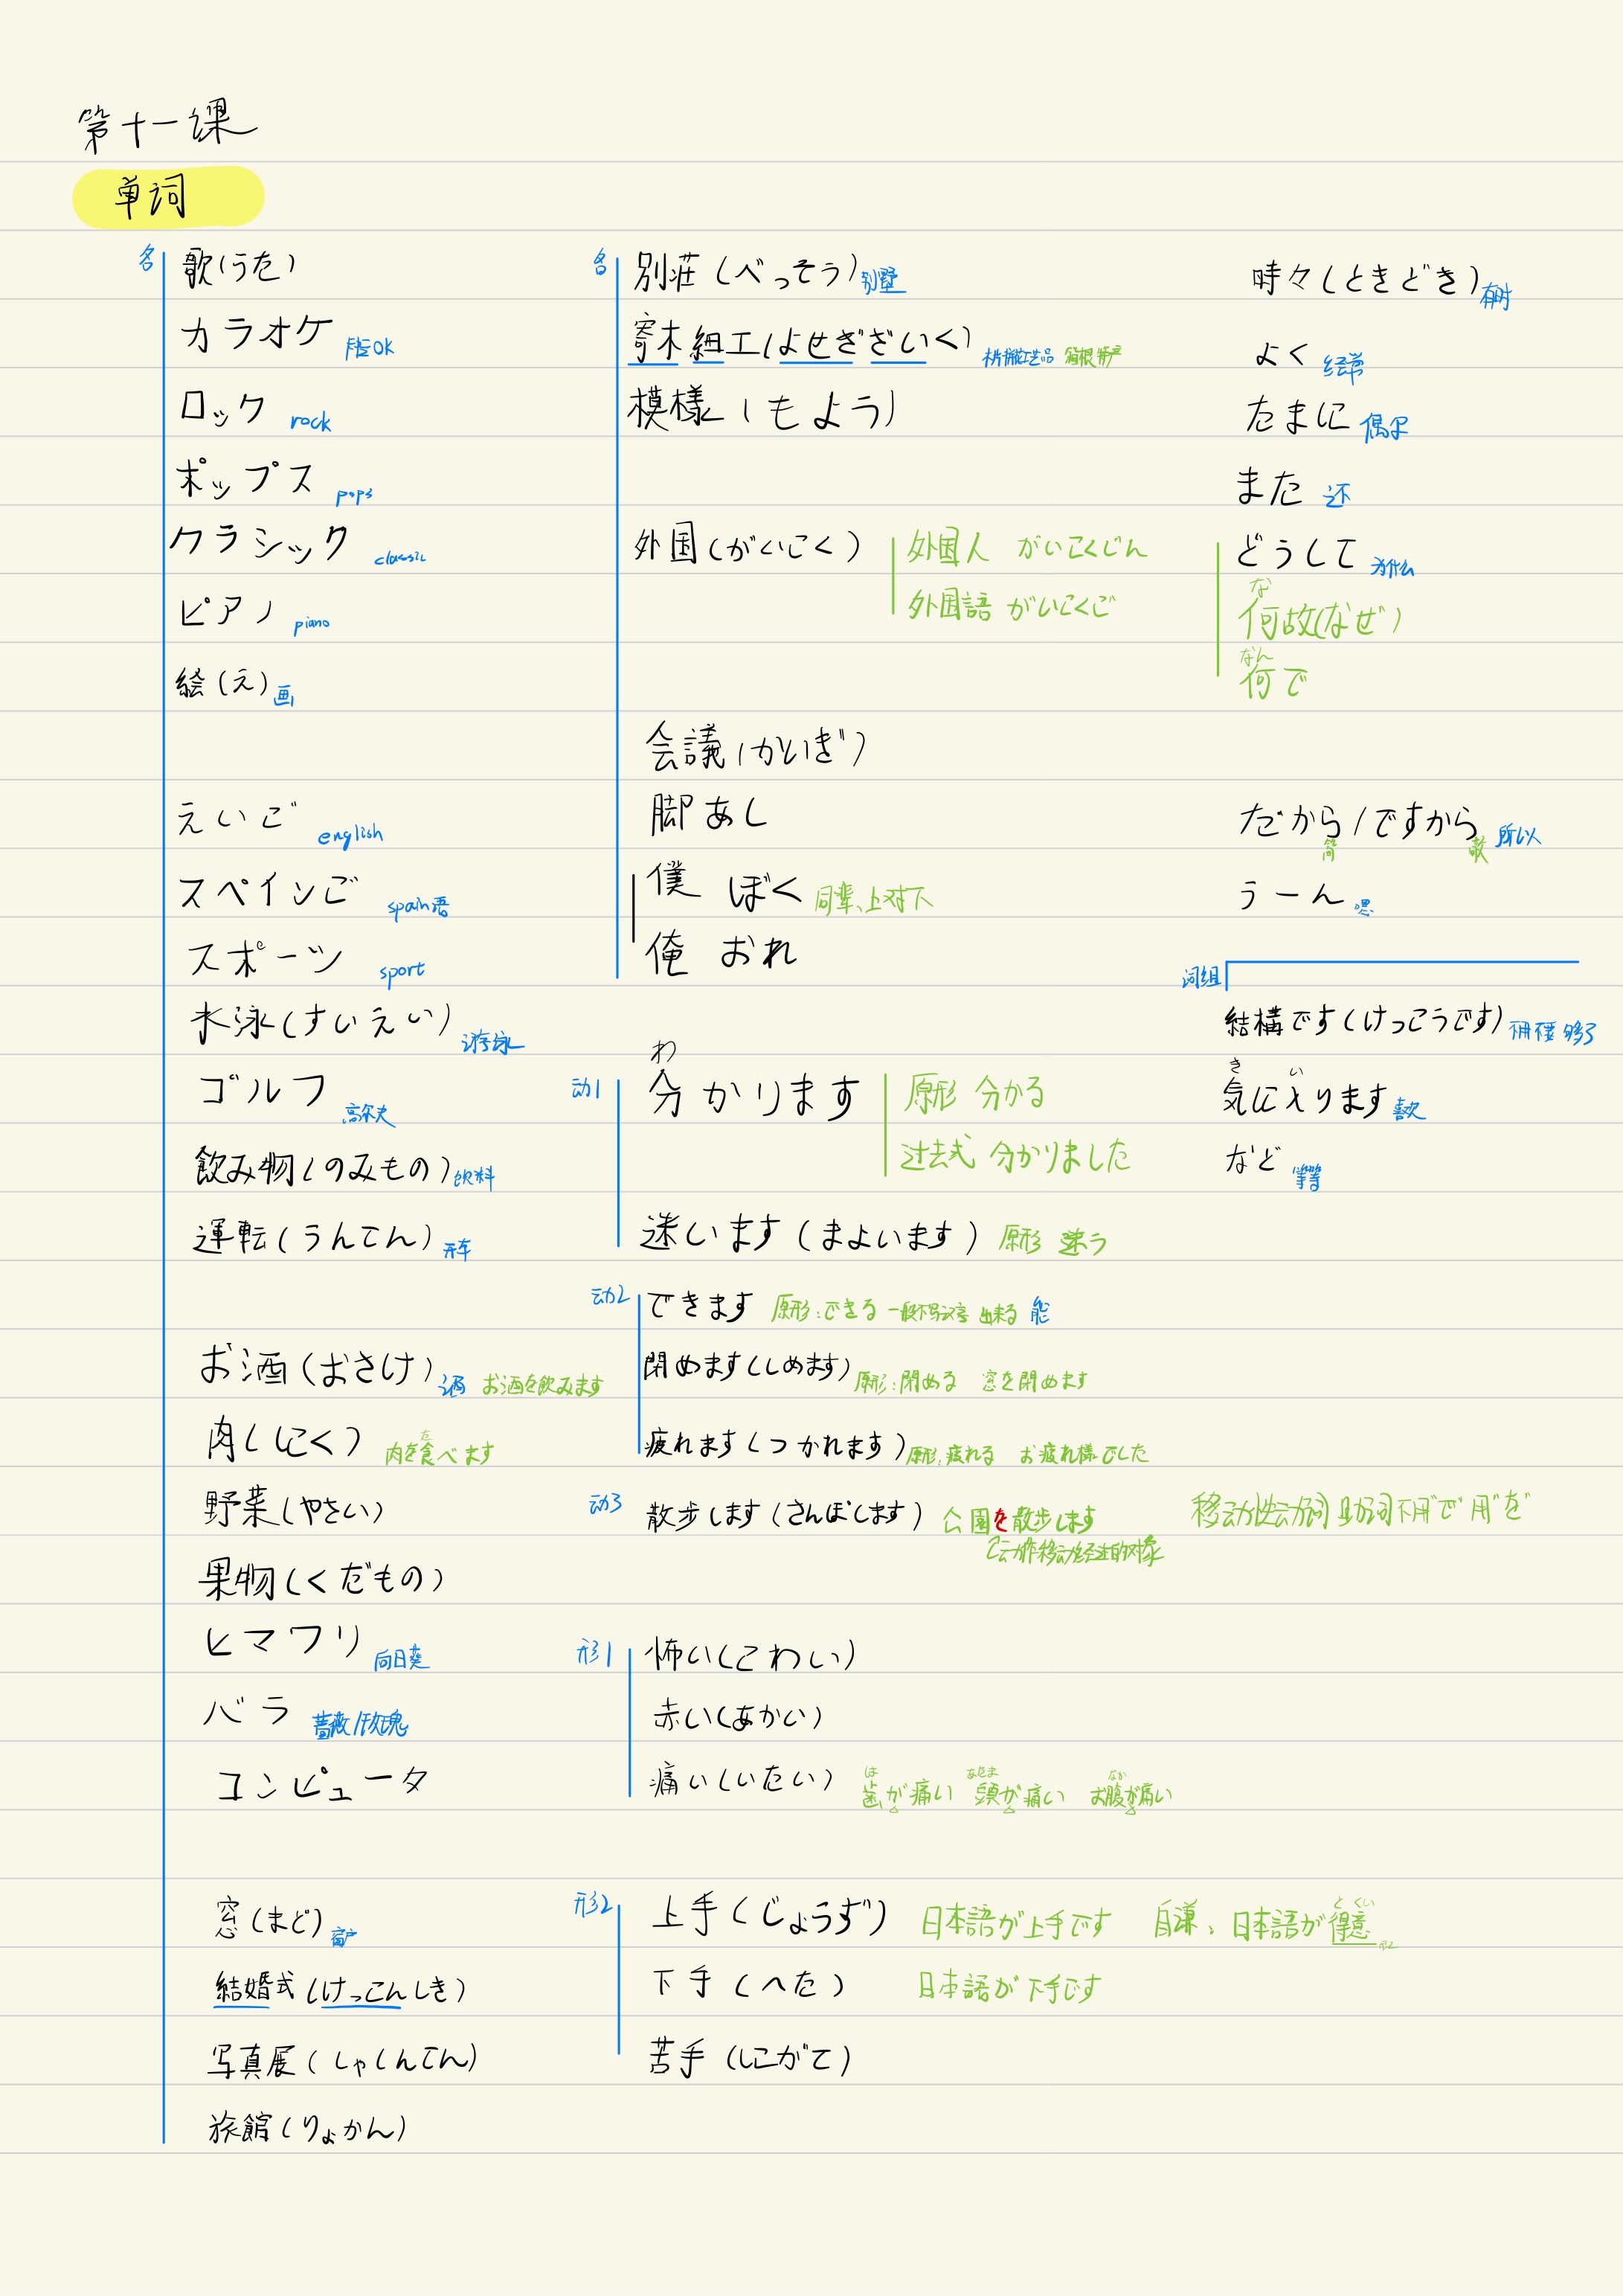 第十一课
单词
名
歌(うた)
カラオケ 卡拉OK
ロック rock
ポップス pops
クラシック classic
ピアノ piano
絵(え) 画
えいご english
スペインご spain语
スポーツ sport
水泳(すいえい) 游泳
ゴルフ 高尔夫
飲み物(のみもの) 饮料
運転(うんてん) 开车
お酒(おさけ) 酒 お酒を飲みます
肉(にく) 肉を食べます
た
野菜(やさい)
果物(くだもの)
ヒマワリ 向日葵
バラ 蔷薇/玫瑰
コンピュータ
窓(まど) 窗户
結婚式(けっこんしき)
写真展(しゃしんてん)
旅館(りょかん)
名
別荘(べっそう) 别墅
寄木細工(よせぎざいく) 工艺品 箱根特产
模様(もよう)
外国(がいこく)
外国人 がいこくじん
外国語 がいこくご
会議(かいぎ)
脚 あし
僕 ぼく 同辈、上对下
俺 おれ
动1
わ
分かります
原形 分かる
过去式 分かりました
迷います(まよいます) 原形 迷う
动2
できます 原形:できる 一般不写汉字 出来る 能
閉めます(しめます) 原形:閉める 窓を閉めます
疲れます(つかれます) 原形:疲れる お疲れ様でした
动3
散歩します(さんぽします) 公園を散歩します 移动性动词 助词不用"で"用"を"
动作移动经过的对象
形1
怖い(こわい)
赤い(あかい)
は あたま なか
痛い(いたい) 歯が痛い 頭が痛い お腹が痛い
形2
とくい
上手(じょうず) 日本語が上手です 自谦:日本語が得意 形2
下手(へた) 日本語が下手です
苦手(にがて)
時々(ときどき) 有时
よく 经常
たまに 偶尔
また 还
どうして 为什么
な
何故(なぜ)
なん
何で
だから/ですから 所以
简 敬
うーん 嗯
词组
結構です(けっこうです) 不用 够了
き い
気に入ります 喜欢
など 等等